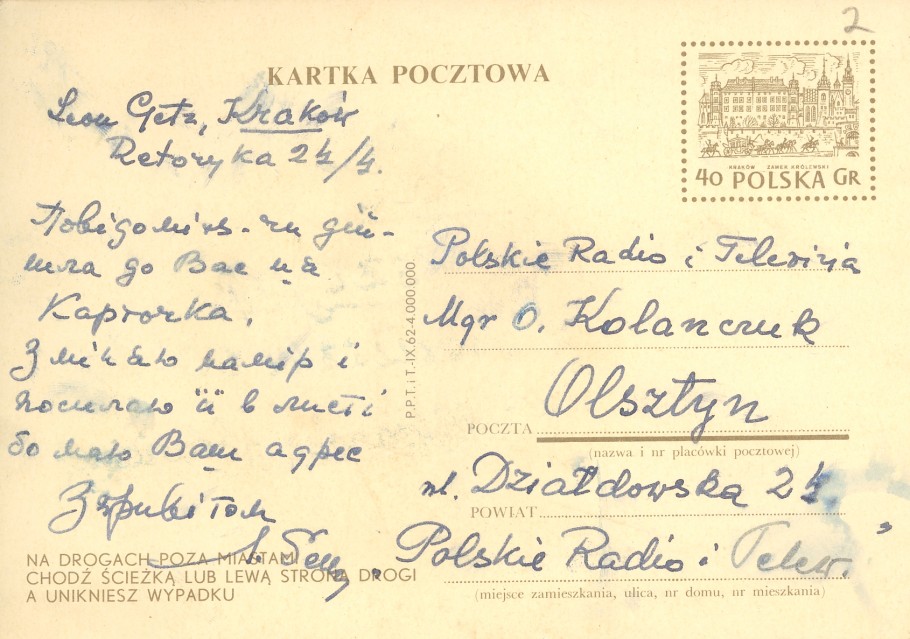 2
KARTKA POCZTOWA
KRAKÓW ZAMEK KRÓLEWSKI
40 POLSKA GR
Leon Getz, Kraków
Retoryka 24/4.
Повідоміть - чи дій-
шла до Вас ця
Карточка.
Зміняю намір і
посилаю її в листі
бо маю Ваш адрес
З привітом
Л. Ґец
Polskie Radio i Telewizja
Mgr O. Kolanczuk
Olsztyn
POCZTA
(nazwa i nr placówki pocztowej)
ul. Działdowska 24
POWIAT
Polskie Radio i Telew.
(miejsce zamieszkania, ulica, nr domu, nr mieszkania)
P.P.T.i T.-IX.62-4.000.000.
NA DROGACH POZA MIASTAMI
CHODŹ ŚCIEŻKĄ LUB LEWĄ STRONĄ DROGI
A UNIKNIESZ WYPADKU